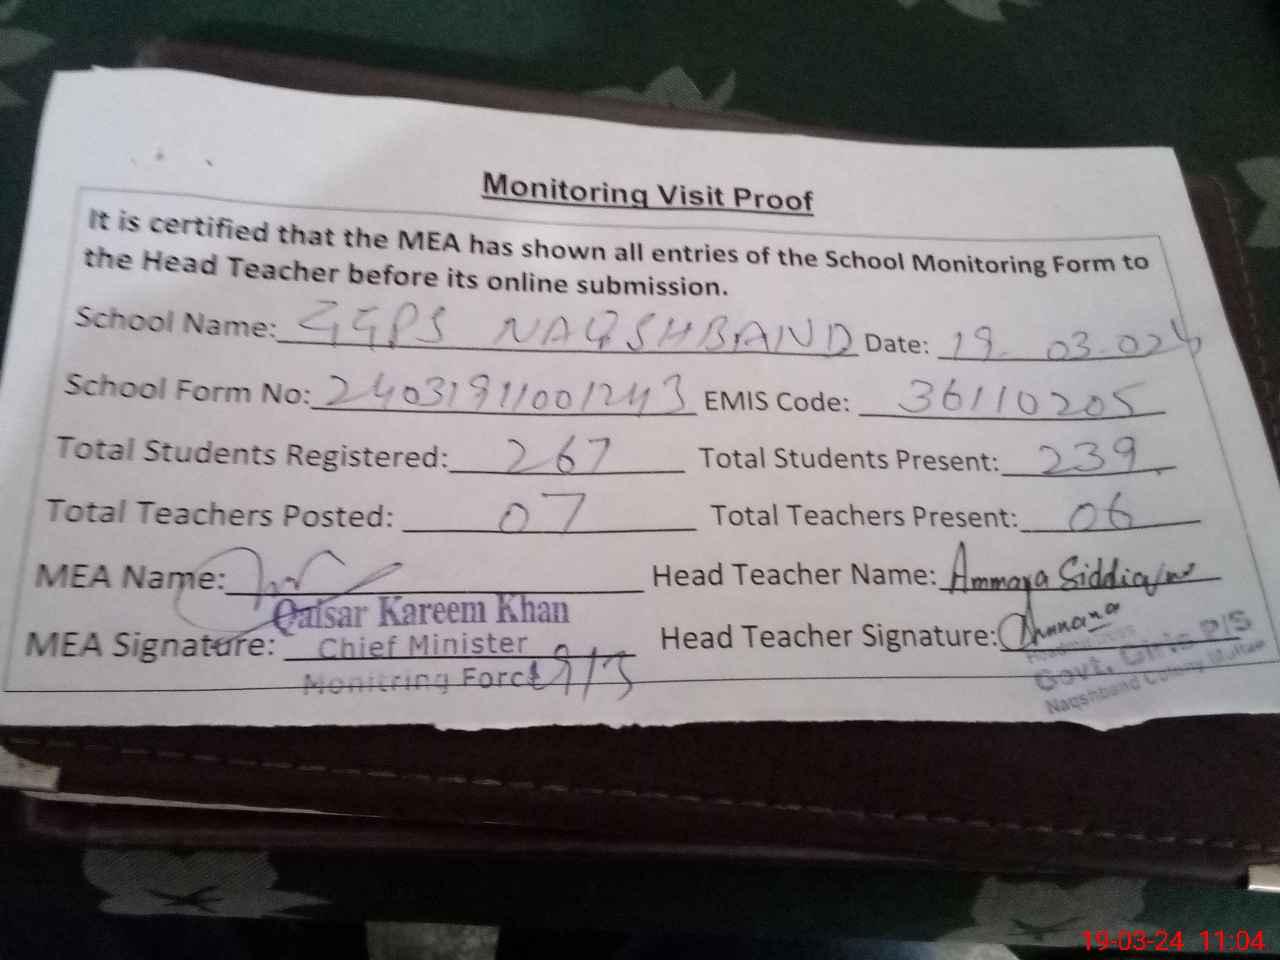 Monitoring Visit Proof
It is certified that the MEA has shown all entries of the School Monitoring Form to
the Head Teacher before its online submission.
School Name: GGPS NAQSHBAND Date: 19.03.024
School Form No: 24031911001243 EMIS Code: 36110205
Total Students Registered: 267 Total Students Present: 239
Total Teachers Posted: 07 Total Teachers Present: 06
MEA Name: Head Teacher Name: Ammara Siddique
Qaisar Kareem Khan
MEA Signature: Chief Minister Head Teacher Signature:
Monitring Force 19/3
Govt. Girls P/S
Naqshband Colony Multan
19-03-24 11:04